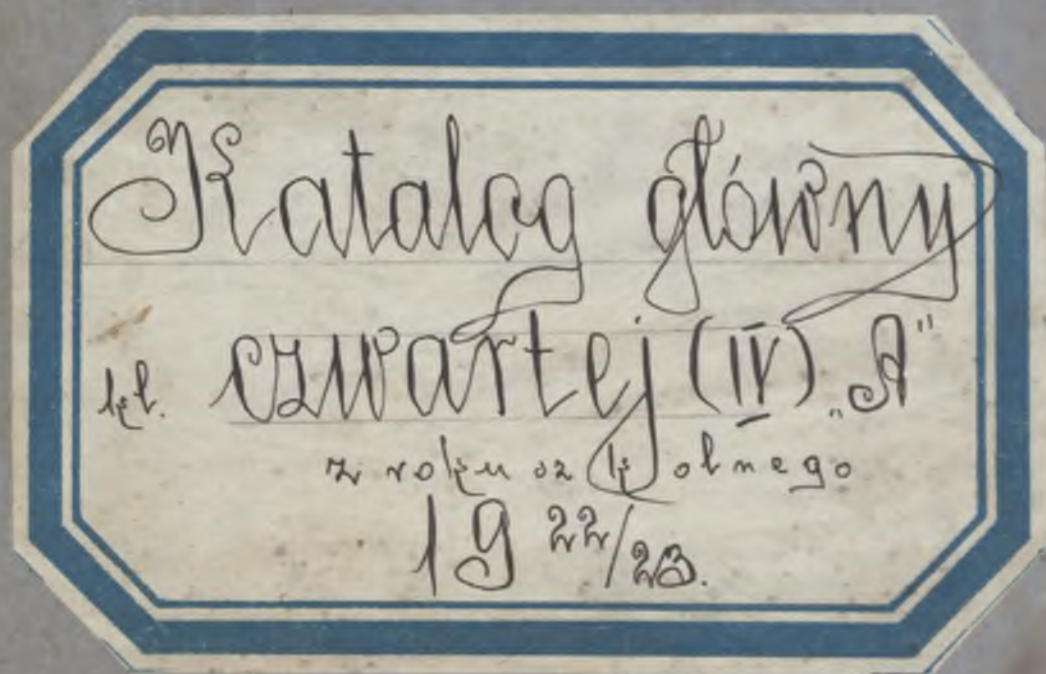 Katalog główny
kl. czwartej (IV) „A"
z roku szkolnego
19 22/23.